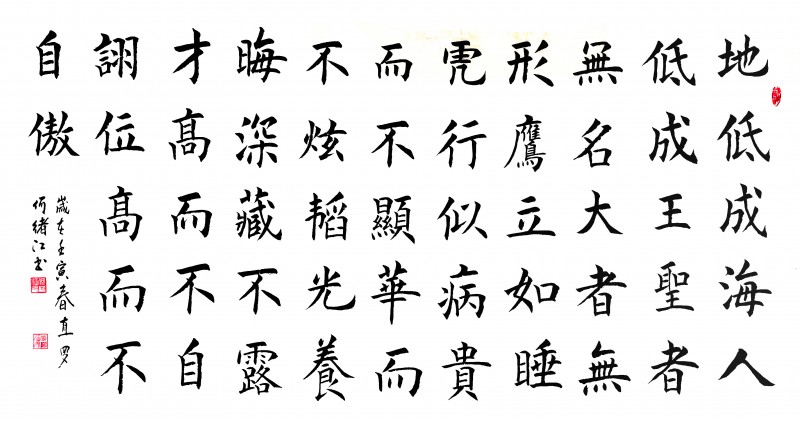 地低成海人
低成王聖者
無名大者無
形鷹立如睡
虎行似病貴
而不顯華而
不炫韜光養
晦深藏不露
才髙而不自
詡位髙而不
自傲
歲在壬寅春直
何緒江書